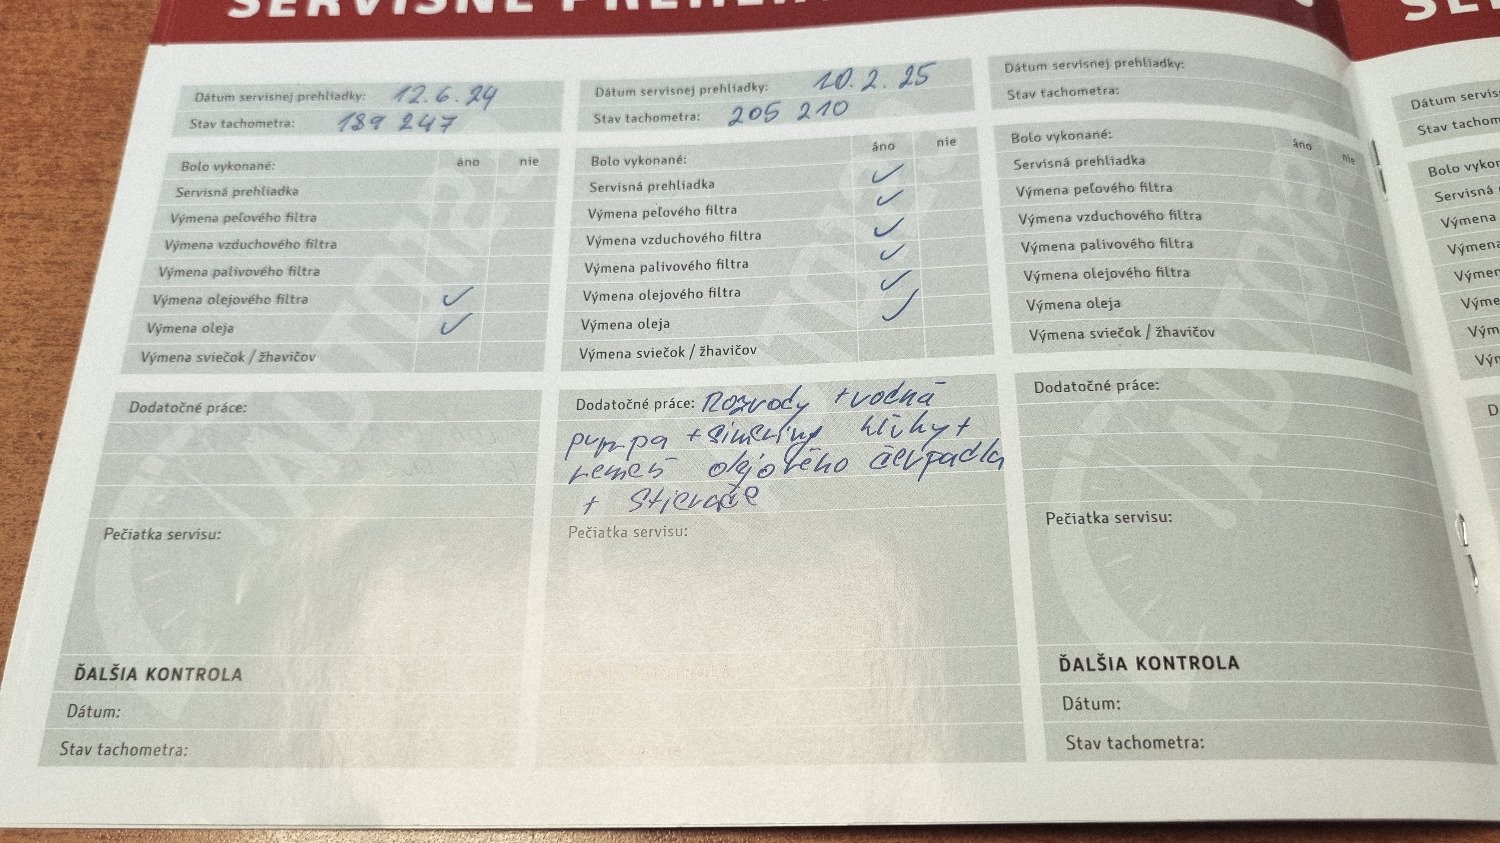 SERVISNÉ
Dátum servisnej prehliadky: 12.6.24
Stav tachometra: 189 247
Bolo vykonané: áno nie
Servisná prehliadka
Výmena peľového filtra
Výmena vzduchového filtra
Výmena palivového filtra
Výmena olejového filtra ✓
Výmena oleja ✓
Výmena sviečok / žhavičov
Dodatočné práce:
Pečiatka servisu:
ĎALŠIA KONTROLA
Dátum:
Stav tachometra:
Dátum servisnej prehliadky: 10.2.25
Stav tachometra: 205 210
Bolo vykonané: áno nie
Servisná prehliadka ✓
Výmena peľového filtra ✓
Výmena vzduchového filtra ✓
Výmena palivového filtra ✓
Výmena olejového filtra ✓
Výmena oleja ✓
Výmena sviečok / žhavičov
Dodatočné práce: Rozvody + vodná
pumpa + simering kľuky +
remeň olejového čerpadla
+ stierače
Pečiatka servisu:
Dátum servisnej prehliadky:
Stav tachometra:
Bolo vykonané: áno nie
Servisná prehliadka
Výmena peľového filtra
Výmena vzduchového filtra
Výmena palivového filtra
Výmena olejového filtra
Výmena oleja
Výmena sviečok / žhavičov
Dodatočné práce:
Pečiatka servisu:
ĎALŠIA KONTROLA
Dátum:
Stav tachometra:
Dátum
Stav
Bolo
Výmena
Výmena